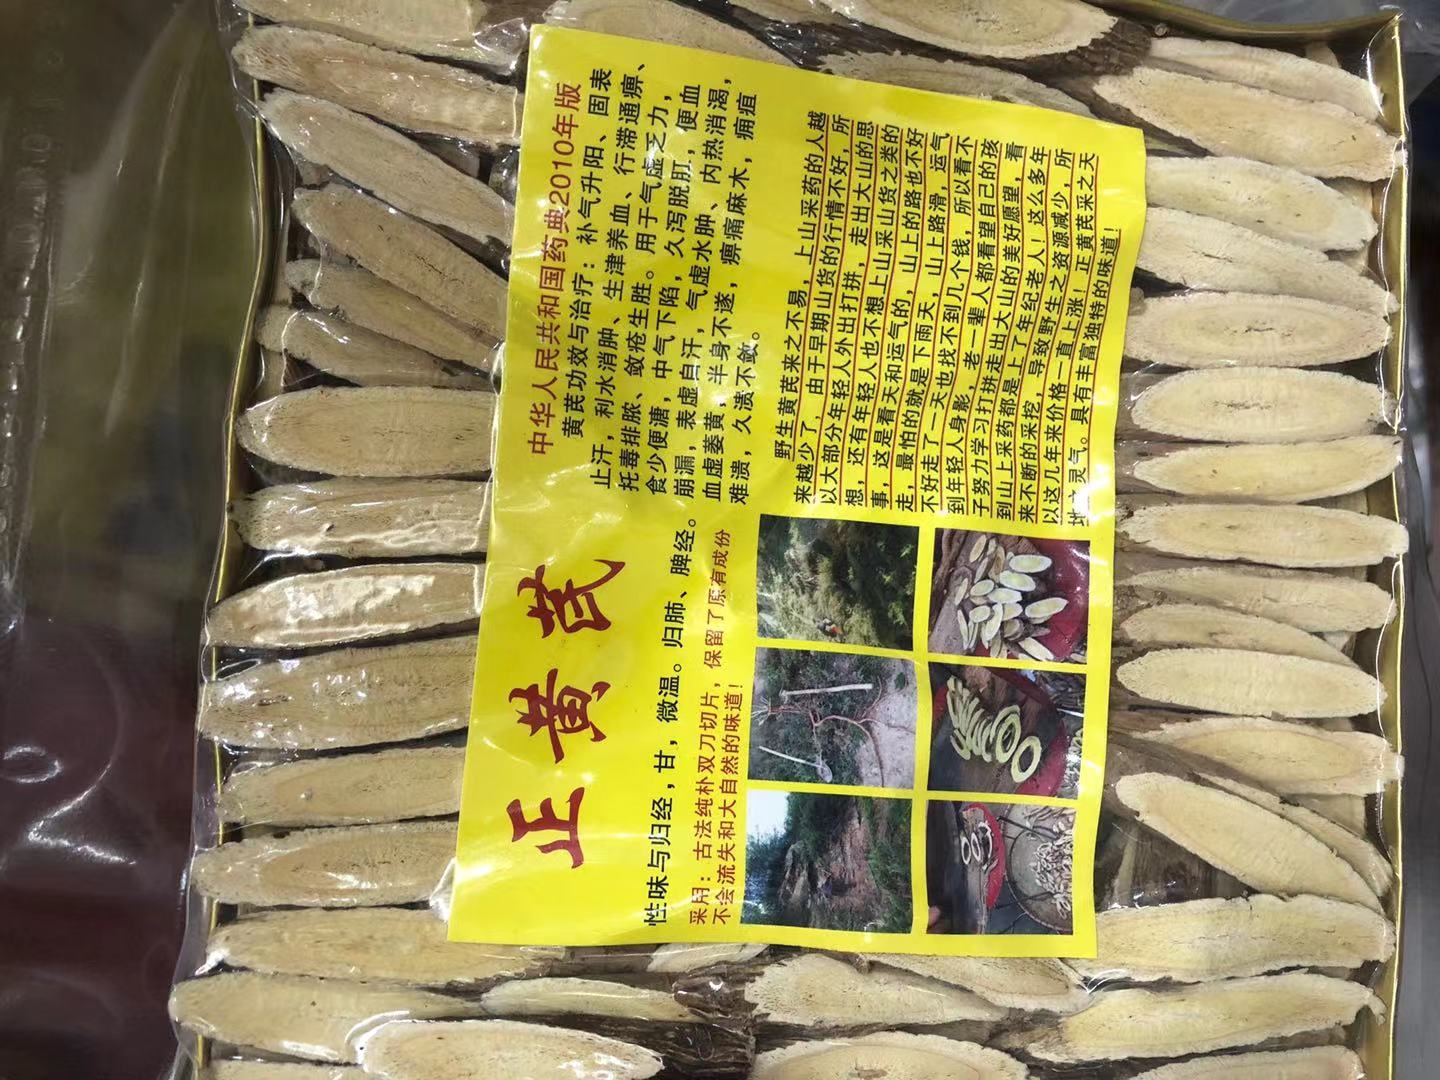 正黄芪
性味与归经，甘，微温。归肺、脾经。
采用：古法纯朴双刀切片，保留了原有成份
不会流失和大自然的味道！
中华人民共和国药典2010年版
黄芪功效与治疗：补气升阳、固表
止汗，利水消肿、生津养血、行滞通痹、
托毒排脓、敛疮生胜。用于气虚乏力，
食少便溏，中气下陷，久泻脱肛，便血
崩漏，表虚自汗，气虚水肿、内热消渴，
血虚萎黄，半身不遂，痹痛麻木，痈疽
难溃，久溃不敛。
野生黄芪来之不易，上山采药的人越
来越少了，由于早期山货的行情不好，所
以大部分年轻人外出打拼，走出大山的思
想，还有年轻人也不想上山采山货之类的
事，这是看天和运气的，山上的路也不好
走，最怕的就是下雨天，山上路滑，运气
不好走了一天也找不到几个钱，所以看不
到年轻人身影，老一辈人都看望自己的孩
子努力学习打拼走出大山的美好愿望，看
到山上采药都是上了年纪老人！这么多年
来不断的采挖，导致野生之资源减少，所
以这几年来价格一直上涨！正黄芪采之天
地之灵气。具有丰富独特的味道！